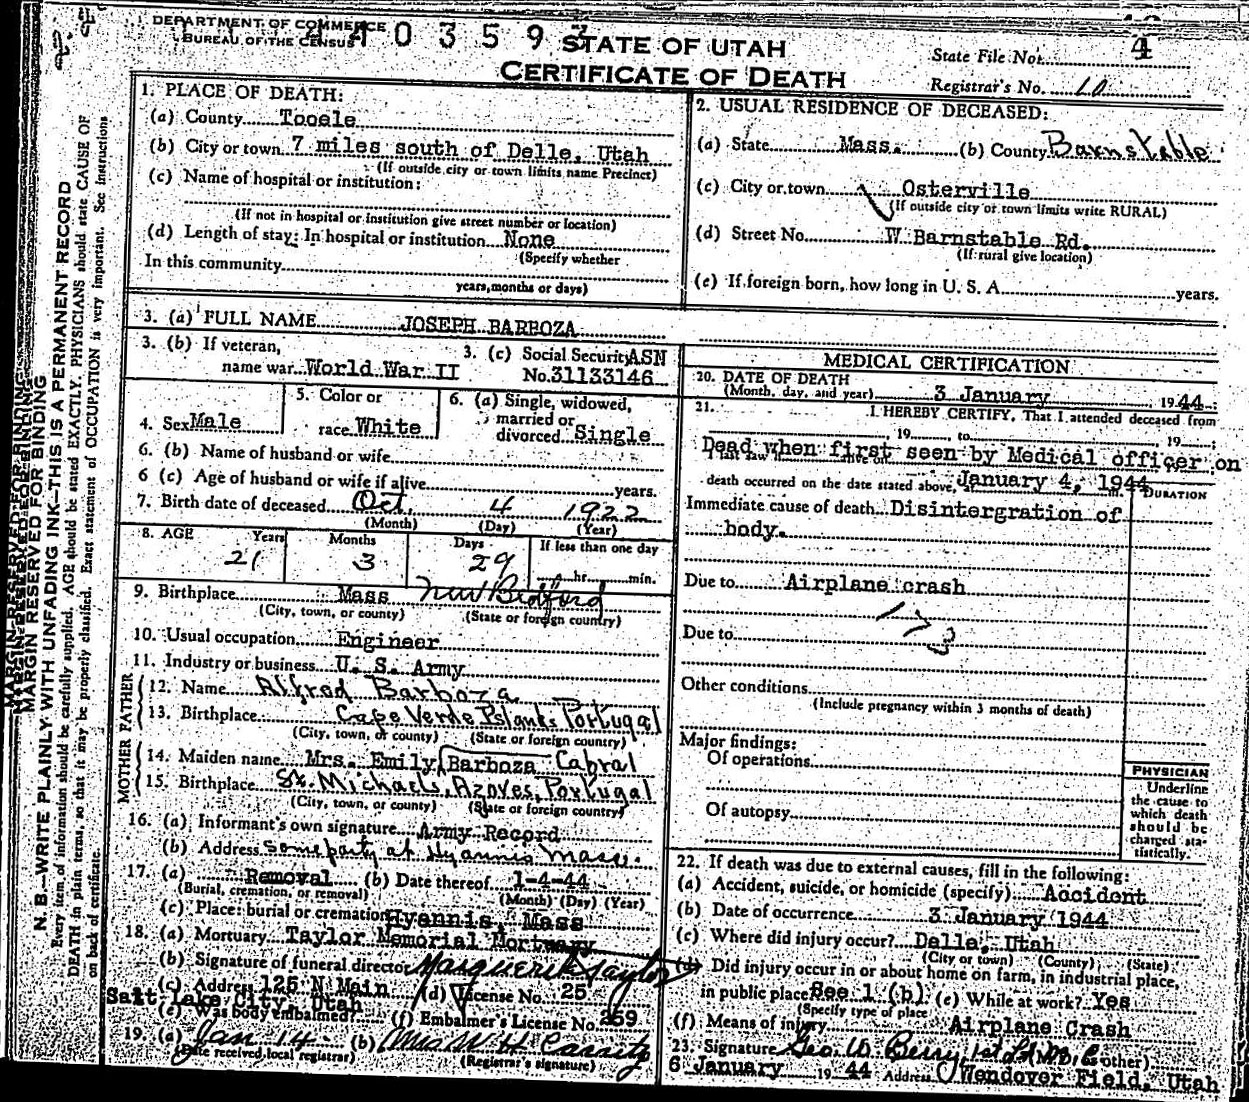 DEPARTMENT OF COMMERCE
BUREAU OF THE CENSUS
STATE OF UTAH
CERTIFICATE OF DEATH
State File No. 4
Registrar's No. 10
MARGIN RESERVED FOR BINDING
N. B.—WRITE PLAINLY WITH UNFADING INK—THIS IS A PERMANENT RECORD
Every item of information should be carefully supplied. AGE should be stated EXACTLY. PHYSICIANS should state CAUSE OF
DEATH in plain terms, so that it may be properly classified. Exact statement of OCCUPATION is very important. See Instructions
on back of certificate.
1. PLACE OF DEATH:
(a) County Tooele
(b) City or town 7 miles south of Delle, Utah
(If outside city or town limits name Precinct)
(c) Name of hospital or institution:
(If not in hospital or institution give street number or location)
(d) Length of stay: In hospital or institution None
(Specify whether
In this community
years, months or days)
2. USUAL RESIDENCE OF DECEASED:
(a) State Mass. (b) County Barnstable
(c) City or town Osterville
(If outside city or town limits write RURAL)
(d) Street No. W Barnstable Rd.
(If rural give location)
(e) If foreign born, how long in U. S. A. years.
3. (a) FULL NAME JOSEPH BARBOZA
3. (b) If veteran,
name war World War II
3. (c) Social Security ASN
No. 31133146
4. Sex Male
5. Color or
race White
6. (a) Single, widowed,
married or
divorced Single
6. (b) Name of husband or wife
6 (c) Age of husband or wife if alive years.
7. Birth date of deceased Oct. 4 1922
(Month) (Day) (Year)
8. AGE Years Months Days If less than one day
21 3 29 hr. min.
9. Birthplace Mass New Bedford
(City, town, or county) (State or foreign country)
10. Usual occupation Engineer
11. Industry or business U. S. Army
FATHER
12. Name Alfred Barboza
13. Birthplace Cape Verde Islands Portugal
(City, town, or county) (State or foreign country)
MOTHER
14. Maiden name Mrs. Emily Barboza Cabral
15. Birthplace St. Michaels, Azores, Portugal
(City, town, or county) (State or foreign country)
16. (a) Informant's own signature Army Record
(b) Address at Hyannis Mass.
17. (a) Removal (b) Date thereof 1-4-44
(Burial, cremation, or removal) (Month) (Day) (Year)
(c) Place: burial or cremation Hyannis, Mass
18. (a) Mortuary Taylor Memorial Mortuary
(b) Signature of funeral director Marguerite Taylor
(c) Address 125 N Main (d) License No. 25
Salt Lake City, Utah
(e) Was body embalmed? (f) Embalmer's License No. 259
19. (a) Jan 14 (b)
(Date received local registrar) (Registrar's signature)
MEDICAL CERTIFICATION
20. DATE OF DEATH
(Month, day, and year) 3 January 1944
21. I HEREBY CERTIFY, That I attended deceased from
19 to 19
Dead when first seen by Medical officer on
death occurred on the date stated above, January 4, 1944
DURATION
Immediate cause of death Disintergration of
body.
Due to Airplane crash
Due to
Other conditions
(Include pregnancy within 3 months of death)
Major findings:
Of operations
Of autopsy
PHYSICIAN
Underline
the cause to
which death
should be
charged sta-
tistically.
22. If death was due to external causes, fill in the following:
(a) Accident, suicide, or homicide (specify) Accident
(b) Date of occurrence 3 January 1944
(c) Where did injury occur? Delle, Utah
(City or town) (County) (State)
(d) Did injury occur in or about home on farm, in industrial place,
in public place See 1 (b) (e) While at work? Yes
(Specify type of place
(f) Means of injury Airplane Crash
23. Signature Geo. W. Berry, 1st Lt. M.C. other)
6 January 1944 Address Wendover Field, Utah